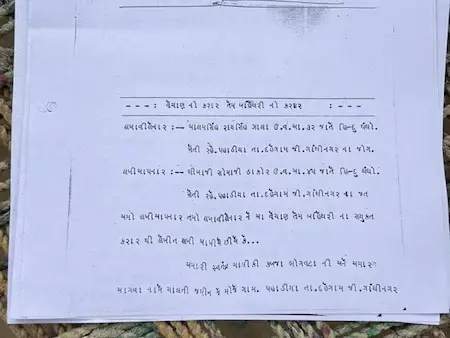 ---: વેચાણ નો કરાર તેમ બાંહેધરી નો કરાર :---
લખાવી લેનાર :-- ઝાલમસિંહ રામસિંહ ઝાલા ઉ.વ.આ.૩૨ જાતે હિન્દુ ધંધો.
ખેતી રહે.પહાડીયા તા.દહેગામ જી.ગાંધીનગર ના જોગ.
લખી આપનાર :-- સોમાજી ઠાકોર ઉ.વ.આ.૪૫ જાતે હિન્દુ ધંધો.
ખેતી રહે.પહાડીયા તા.દહેગામ જી.ગાંધીનગર ના જત
અમો લખી આપનાર તમો લખાવી લેનાર ને આ વેચાણ તેમ બાંહેધરી ના સંયુક્ત
કરાર થી લેખીત લખી આપીએ છીએ કે...
અમારી સ્વતંત્ર માલીકી કબજા ભોગવટા ની અને અમારા
નામે ચાલતી જમીન કે મોજે ગામ. પહાડીયા તા.દહેગામ જી.ગાંધીનગર